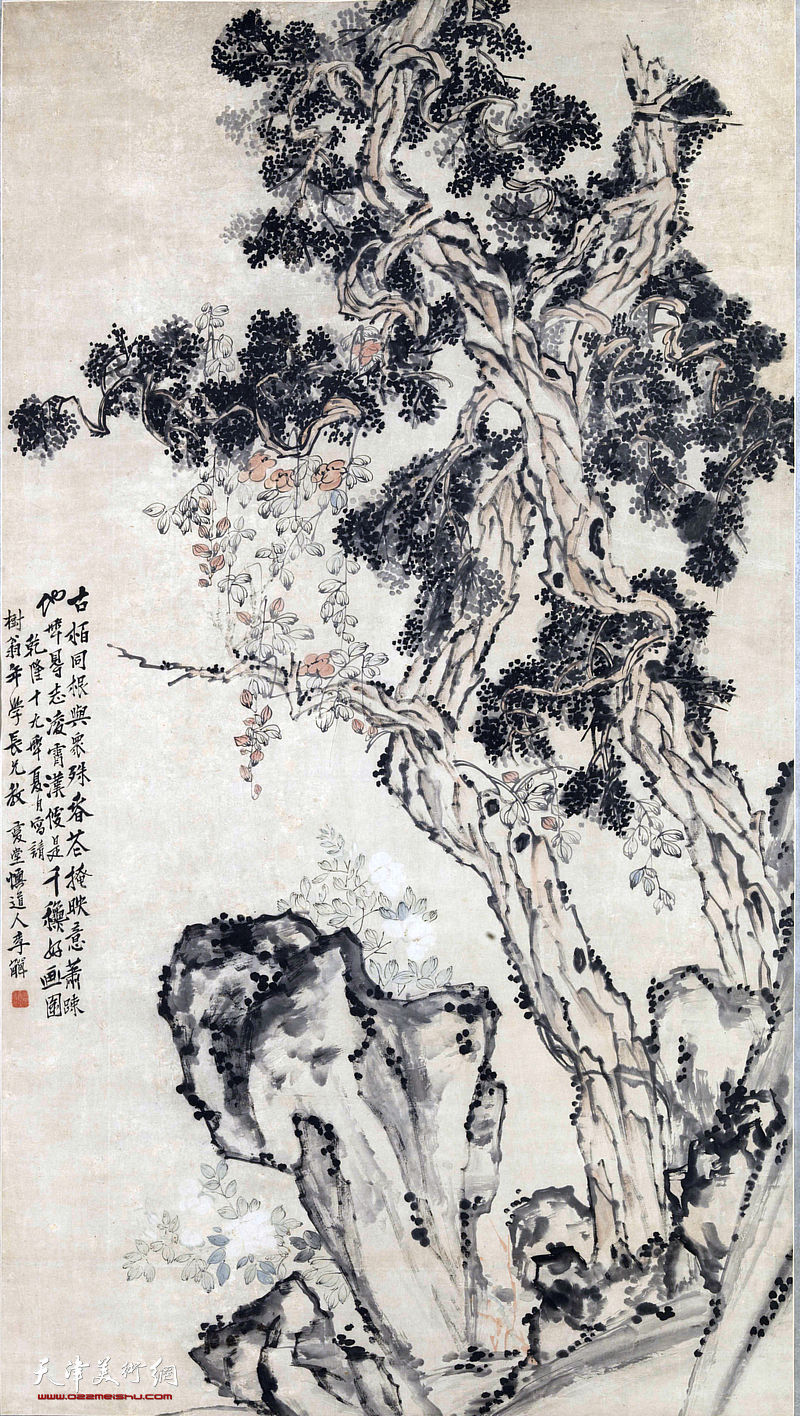 古栢同根與眾殊春花掩映意蕭踈
他年昜志凌霄漢便是千穐好画图
乾隆十九年夏月寫請
樹翁年學長兄教 夏堂懊道人李解
天津美術網
www.022meishu.com